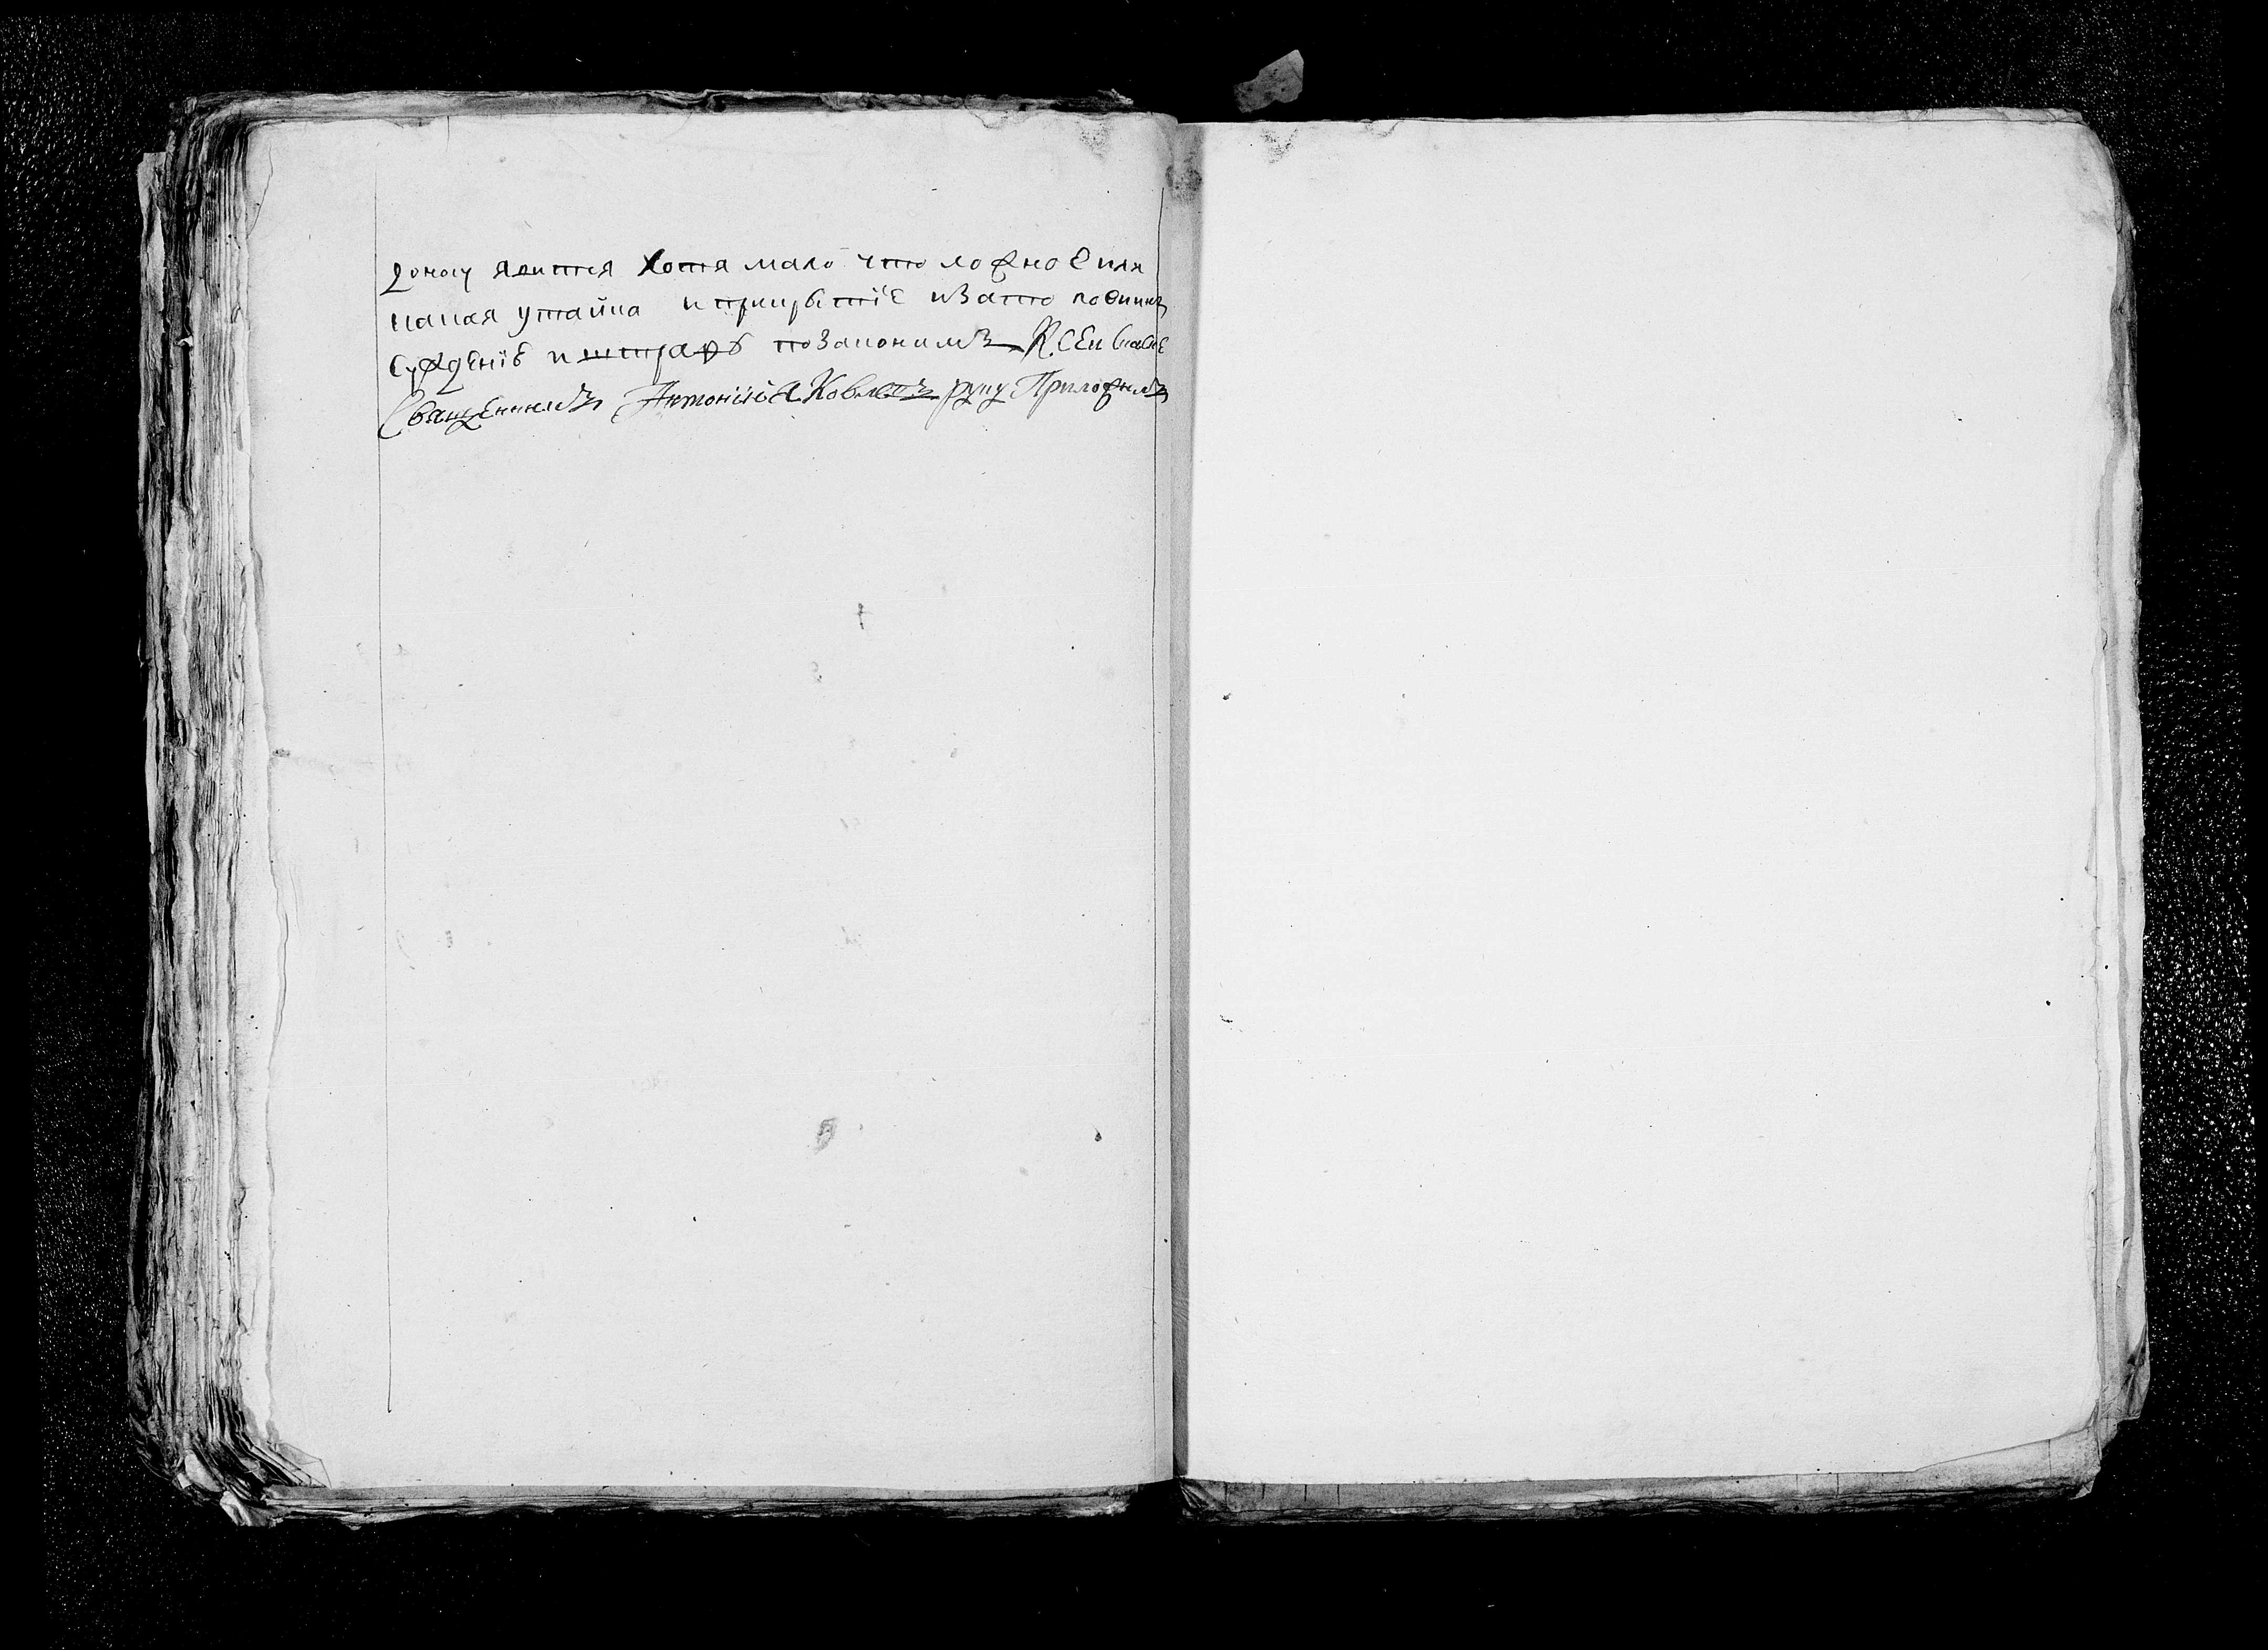 доносу явится хотя мало что ложное или
какая утайка и прикрытіе и за то повиненъ
сужденіе и штрафъ по законамъ К сей сказке
Священникъ Антоній Яковлевъ руку Приложилъ